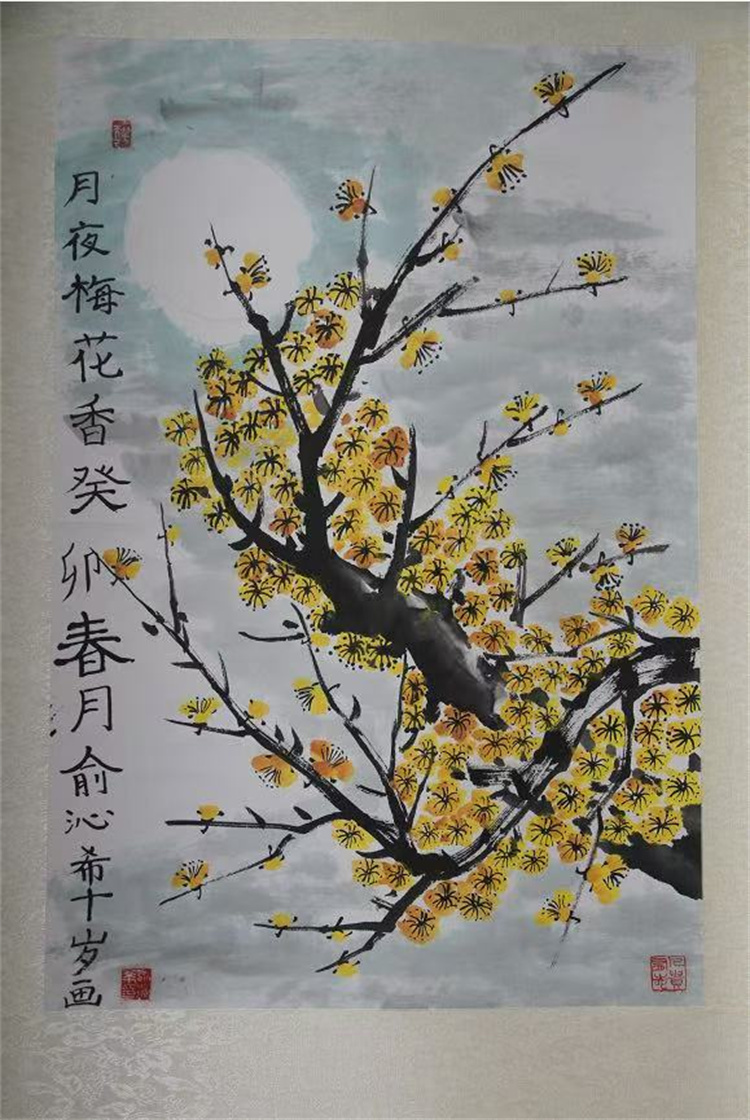 月夜梅花香癸卯春月俞沁希十岁画